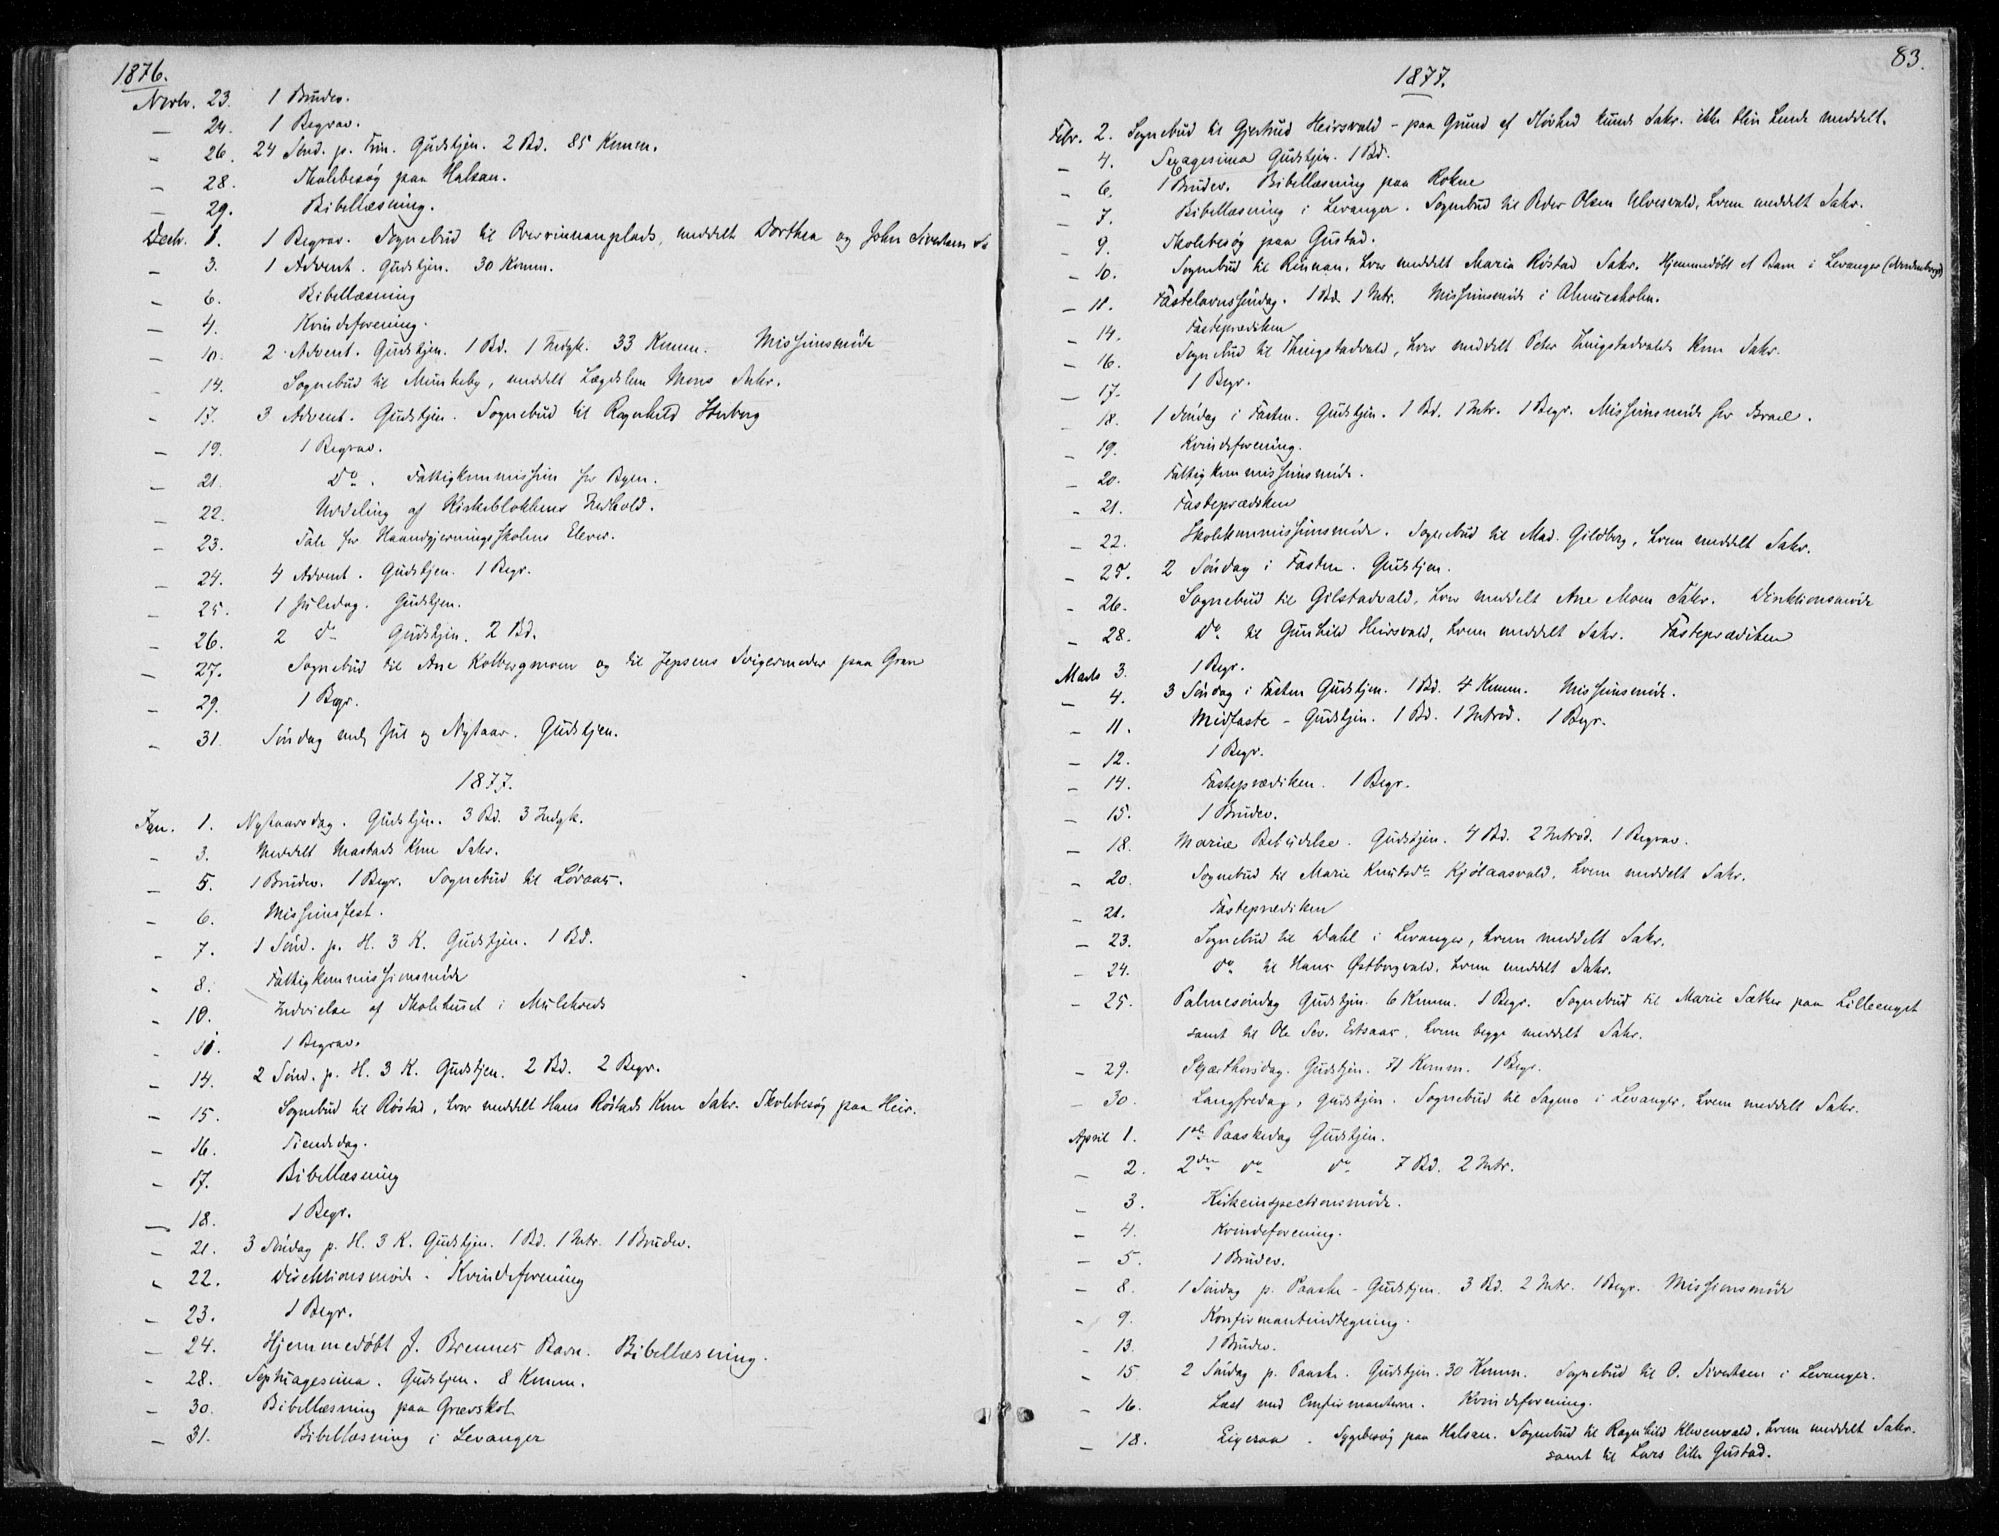 1876.
Novbr. 23. 1 Brudev.
— 24. 1 Begrav.
— 26. 24 Sønd. p. Trin. Gudstjen. 2 Bd. 85 Komm.
— 28. Skolebesøg paa Halsan.
— 29. Bibellæsning.
Decbr. 1. 1 Begrav. Sognebud til Overrinnanplads, meddelt Dorthea og John Sivertsen
— 3. 1 Advent. Gudstjen. 30 Komm.
— 6. Bibellæsning
— 4. Kvindeforening.
— 10. 2 Advent. Gudstjen. 1 Bd. 1 Indgk. 33 Komm. Missionsmøde
— 14. Sognebud til Munkeby, meddelt Lægdslem Mons Sakr.
— 17. 3 Advent. Gudstjen. Sognebud til Ragnhild
— 19. 1 Begrav.
— 21. Do. Fattigkommission for Byen.
— 22. Uddeling af Kirkeblokkens Indhold.
— 23. Tale for Haandgjerningsskolens Elever.
— 24. 4 Advent. Gudstjen. 1 Begr.
— 25. 1 Juledag. Gudstjen.
— 26. 2 do Gudstjen. 2 Bd.
— 27. Sognebud til Ane Kolbergmoen og til Jepsens Svigermoder paa Gran
— 29. 1 Begr.
— 31. Søndag mell. Jul og Nytaar. Gudstjen.
1877.
Jan. 1. Nytaarsdag. Gudstjen. 3 Bd. 3 Indgk.
— 3. Meddelt Mastads Kone Sakr.
— 5. 1 Brudev. 1 Begr. Sognebud til Løvaas.
— 6. Missionsfest.
— 7. 1 Sønd. p. H. 3 K. Gudstjen. 1 Bd.
— 8. Fattigkommissionsmøde
— 10. Indvielse af Skolehuset i Mulekreds
— 11. 1 Begrav.
— 14. 2 Sønd. p. H. 3 K. Gudstjen. 2 Bd. 2 Begr.
— 15. Sognebud til Røstad, hvor meddelt Hans Røstads Kone Sakr. Skolebesøg paa Heir.
— 16. Tiendedag.
— 17. Bibellæsning
— 18. 1 Begr.
— 21. 3 Søndag p. H. 3 K. Gudstjen. 1 Bd. 1 Intr. 1 Brudev.
— 22. Direktionsmøde. Kvindeforening
— 23. 1 Begr.
— 24. Hjemmedøbt J. Brennes Barn. Bibellæsning.
— 28. Septuagesima. Gudstjen. 8 Komm.
— 30. Bibellæsning paa Grevskot
— 31. Bibellæsning i Levanger
83.
1877.
Febr. 2. Sognebud til Gjertrud Heirsvald – paa Grund af Døvhed kunde Sakr. ikke blive hende meddelt.
— 4. Sexagesima Gudstjen. 1 Bd.
— 6. 1 Brudev. Bibellæsning paa Rokne
— 7. Bibellæsning i Levanger. Sognebud til Peder Olsen Ulvesvald, hvem meddelt Sakr.
— 9. Skolebesøg paa Gustad.
— 10. Sognebud til Rinnan, hvor meddelt Maria Røstad Sakr. Hjemmedøbt et Barn i Levanger
— 11. Fastelavnssøndag. 1 Bd. 1 Intr. Missionsmøde i Almueskolen.
— 14. Fasteprædiken
— 16. Sognebud til Thingstadvald, hvor meddelt Peter Tingstadvalds Kone Sakr.
— 17. 1 Begr.
— 18. 1 Søndag i Fasten. Gudstjen. 1 Bd. 1 Intr. 1 Begr. Missionsmøde for Israel.
— 19. Kvindeforening.
— 20. Fattigkommissionsmøde.
— 21. Fasteprædiken
— 22. Skolekommissionsmøde. Sognebud til Mad. Gildberg, hvem meddelt Sakr.
— 25. 2 Søndag i Fasten. Gudstjen.
— 26. Sognebud til Gilstadvald, hvor meddelt Ane Moen Sakr. Direktionsmøde
— 28. Do til Gunhild Heirsvald, hvem meddelt Sakr. Fasteprædiken
Marts 3. 1 Begr.
— 4. 3 Søndag i Fasten Gudstjen. 1 Bd. 4 Komm. Missionsmøde.
— 11. Midfaste – Gudstjen. 1 Bd. 1 Introd. 1 Begr.
— 12. 1 Begr.
— 14. Fasteprædiken. 1 Begr.
— 15. 1 Brudev.
— 18. Mariæ Bebudelse. Gudstjen. 4 Bd. 2 Introd. 1 Begrav.
— 20. Sognebud til Marie Knutsdtr Kjølaasvald, hvem meddelt Sakr.
— 21. Fasteprædiken
— 23. Sognebud til Dahl i Levanger, hvem meddelt Sakr.
— 24. Do til Hans Østborgvald, hvem meddelt Sakr.
— 25. Palmesøndag Gudstjen. 6 Komm. 1 Begr. Sognebud til Marie Sæther paa Lilleenget
samt til Ole Sev. Edsaas, hvem begge meddelt Sakr.
— 29. Skjærthorsdag. Gudstjen. 71 Komm. 1 Begr.
— 30. Langfredag, Gudstjen. Sognebud til Sagmo i Levanger, hvem meddelt Sakr.
April 1. 1ste Paaskedag Gudstjen.
— 2. 2den do do 7 Bd. 2 Intr.
— 3. Kirkeinspectionsmøde.
— 4. Kvindeforening.
— 5. 1 Brudev.
— 8. 1 Søndag p. Paaske – Gudstjen. 3 Bd. 2 Intr. 1 Begr. Missionsmøde
— 9. Konfirmantindtegning.
— 13. 1 Brudev.
— 15. 2 Søndag p. Paaske. Gudstjen. 30 Komm. Sognebud til O. Sivertsen i Levanger.
— 16. Læst med Confirmanterne. Kvindeforening.
— 18. Ligesaa. Sygebesøg paa Halsan. Sognebud til Ragnhild Klevenvald, hvem meddelt Sakr.
samt til Lars lille Gustad.